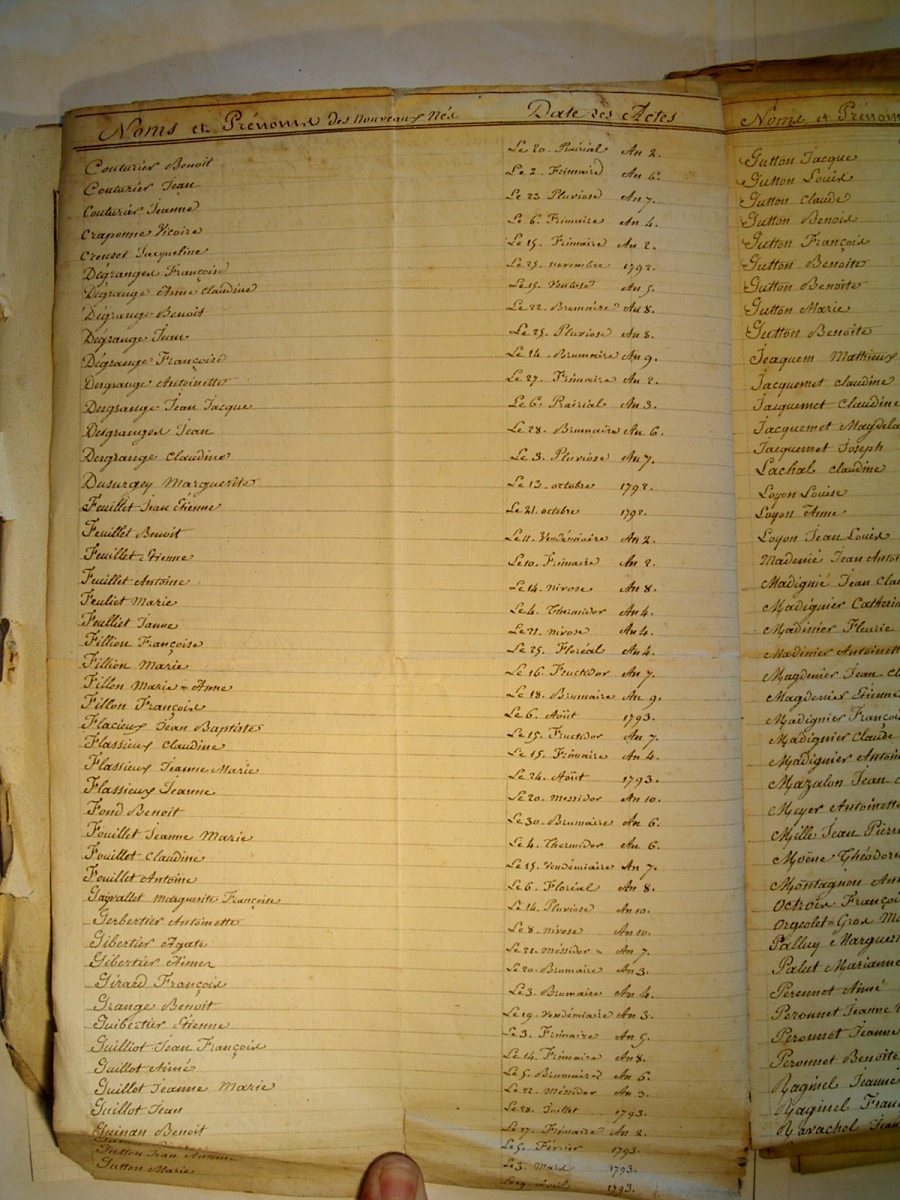 Noms et Prénoms des nouveaux Nés Date des Actes
Couturier Benoit Le 20. Prairial An 2.
Couturier Jean Le 2. Frimaire An 6.
Couturier Jeanne Le 23 Pluviose An 7.
Craponne Vicoire Le 6. Frimaire An 4.
Creuset Jacqueline Le 15. Frimaire An 2.
Dégranges Françoise Le 25. novembre 1792.
Dégrange Anne Claudine Le 15. Ventose An 5.
Dégrange Benoit Le 22. Brumaire An 8.
Dégrange Jean Le 25. Pluviose An 8.
Dégrange Françoise Le 14. Brumaire An 9.
Desgrange Antoinette Le 27. Frimaire An 2.
Desgrange Jean Jacque Le 6. Prairial An 3.
Desgranges Jean Le 28. Brumaire An 6.
Desgrange Claudine Le 3. Pluviose An 7.
Dusurgey Marguerite Le 13. octobre 1792.
Feuillet Jean Etienne Le 21. octobre 1792.
Feuillet Benoit Le 11. Vendémiaire An 2.
Feuillet Etienne Le 10. Frimaire An 2.
Feuillet Antoine Le 14. nivose An 8.
Feuliet Marie Le 4. Thermidor An 4.
Feulliet Janne Le 21. nivose An 4.
Fillion Françoise Le 25. Floréal An 4.
Fillion Marie Le 16. Fructidor An 7.
Fillon Marie-Anne Le 18. Brumaire An 9.
Fillon François Le 6. Août 1793.
Flacieux Jean Baptiste Le 15. Fructidor An 7.
Flassieux Claudine Le 15. Frimaire An 4.
Flassieux Jeanne Marie Le 24. Août 1793.
Flassieux Jeanne Le 20. messidor An 10.
Fond Benoit Le 30. Brumaire An 6.
Fouillet Jeanne Marie Le 4. Thermidor An 6.
Fouillet Claudine Le 15. Vendémiaire An 7.
Fouillet Antoine Le 6. Floréal An 8.
Marguerite Françoise Le 14. Pluviose An 10.
Gerbertier Antoinette Le 8. nivose An 10.
Gibertier Agate Le 21. méssidor An 7.
Gibertier Aimer Le 20. Brumaire An 3.
Girard François Le 3. Brumaire An 4.
Grange Benoit Le 19. Vendémiaire An 3.
Guibertier Etienne Le 3. Frimaire An 5.
Guilliot Jean François Le 14. Frimaire An 8.
Guillot Aimé Le 5. Brumaire An 6.
Guillot Jeanne Marie Le 22. méssidor An 3.
Guillot Jean Le 28. Juillet 1793.
Guinan Benoit Le 17. Frimaire An 2.
Le 5. Février 1793.
Gutton Jean Antoine Le 3. Mars 1793.
Gutton Marie avril 1793.
Noms et Prénom
Gutton Jacque
Gutton Louis
Gutton Claude
Gutton Benois
Gutton François
Gutton Benoite
Gutton Benoite
Gutton Marie
Gutton Benoite
Jacquem Mathieux
Jacquemet Claudine
Jacquemet Claudine
Jacquemet Magdela
Jacquemet Joseph
Lachal Claudine
Loyon Louise
Loyon Anne
Loyon Jean Louis
Madenié Jean Anton
Madignié Jean Clau
Madignier Catherin
Madinier Fleurie
Madinier Antoinett
Magdenier Jean Cl
Magdenier Etienne
Madignier Françoi
Madignier Claude
Madignier Antoin
Mazalon Jean
Meyer Antoinette
Mille Jean Pierr
Moëne Théodor
Montagnon Ann
Octroix Françoi
Orgeolet=Gros Ma
Palluy Marguer
Palut Marianne
Perennot Aimé
Peronnet Jeanne
Peronnet Jeanne
Peronnet Benoite
Raginel Jeanne
Raginel Fran
Ravachol Jean